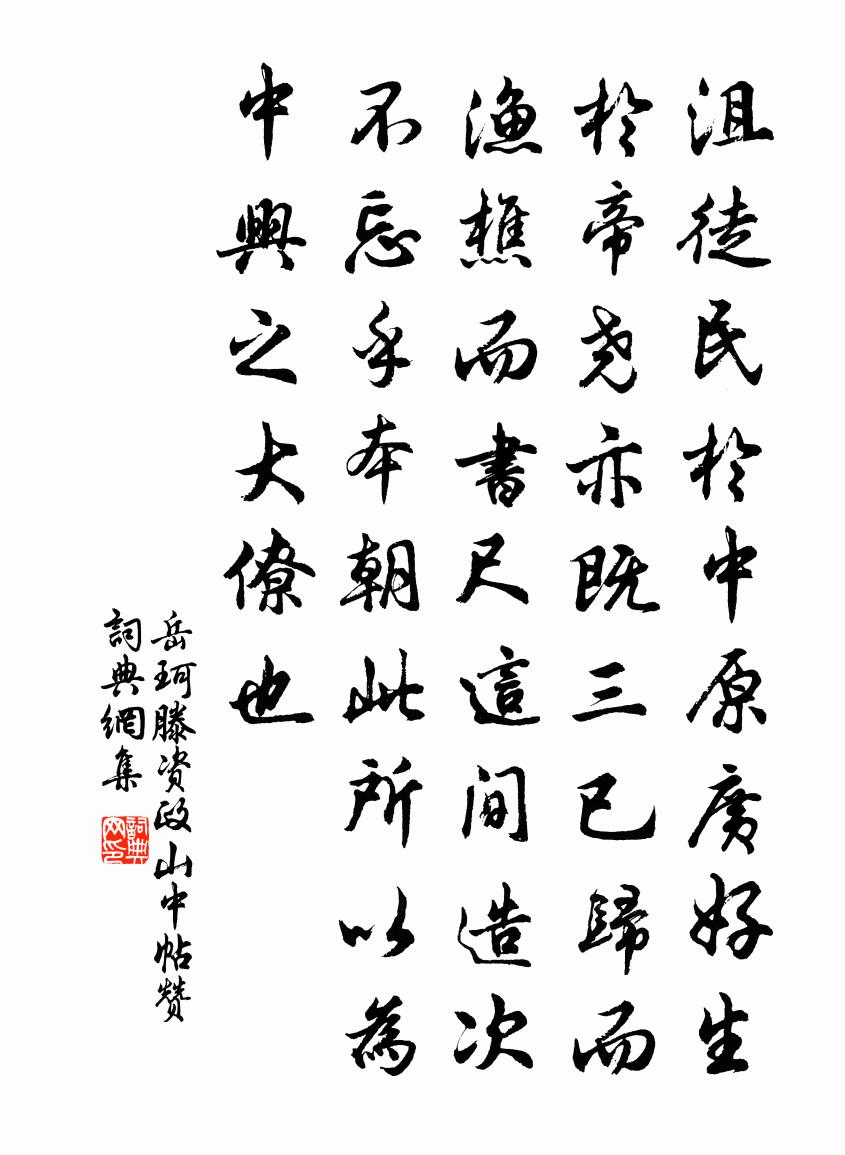 沮徒民於中原廣好生
於帝尧亦既三已歸而
漁樵而書尺這間造次
不忘乎本朝此所以為
中興之大僚也
岳珂滕资政山中帖赞
詞典網集